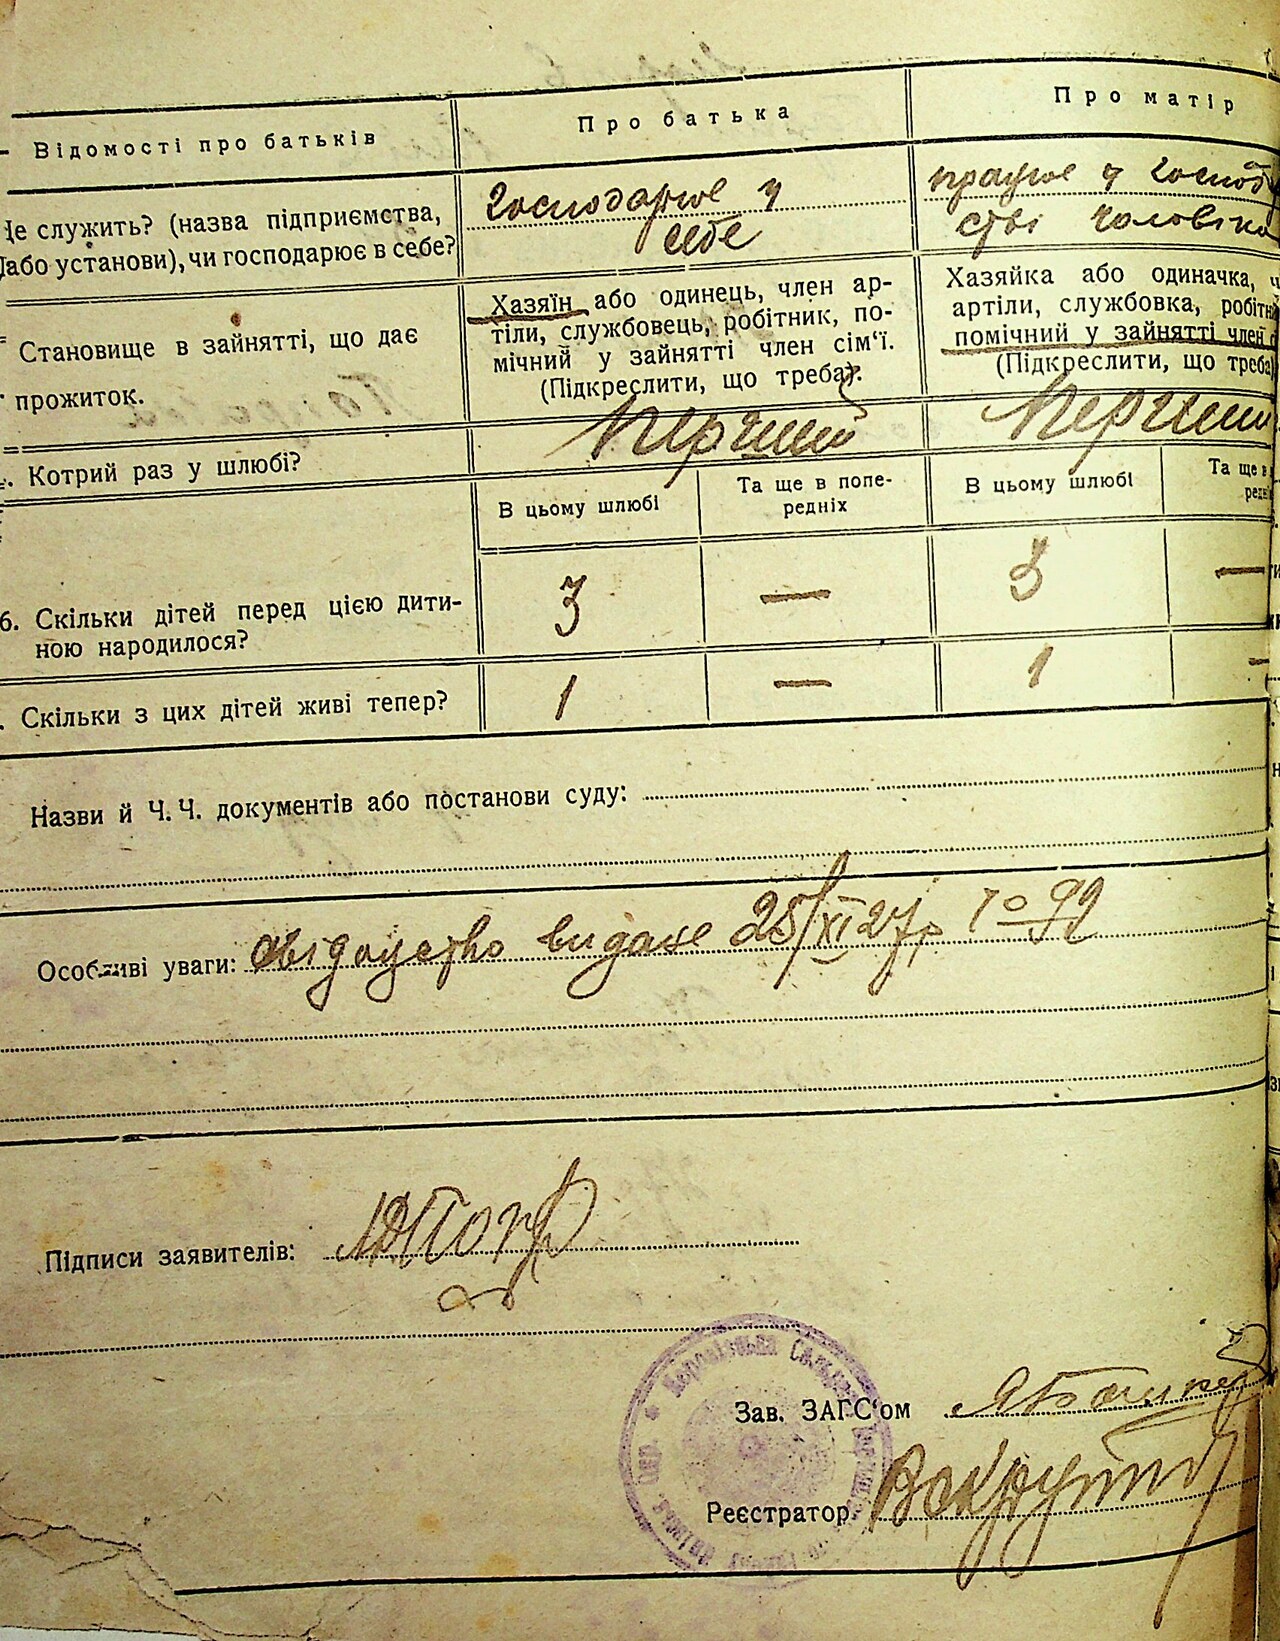 Відомості про батьків
Про батька
Про матір
Де служить? (назва підприємства,
або установи), чи господарює в себе?
господарює у
себе
працює у господар
стві чоловіка
Становище в зайнятті, що дає
прожиток.
Хазяїн або одинець, член ар-
тіли, службовець, робітник, по-
мічний у зайнятті член сім‘ї.
(Підкреслити, що треба).
Хазяйка або одиначка, ч
артіли, службовка, робітн
помічний у зайнятті член с
(Підкреслити, що треба
Котрий раз у шлюбі?
Перший
Перший
В цьому шлюбі
Та ще в попе-
редніх
В цьому шлюбі
Та ще в
редн
6. Скільки дітей перед цією дити-
ною народилося?
3 — 3 —
Скільки з цих дітей живі тепер?
1 — 1 —
Назви й Ч. Ч. документів або постанови суду:
Особливі уваги: свідоцтво видане 25/XI 27 р 92
Підписи заявителів:
Зав. ЗАГС‘ом
Реєстратор